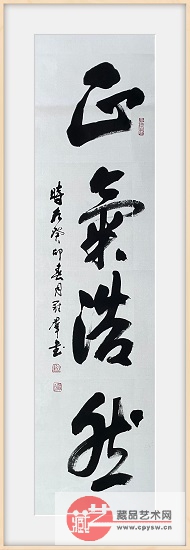 正氣浩然
時在癸卯春月羅峯書
藏品艺术网
www.cpysw.cn